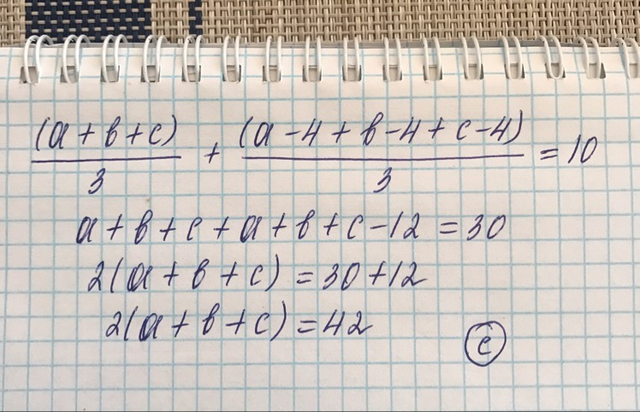 (a + b + c)/3 + (a - 4 + b - 4 + c - 4)/3 = 10
a + b + c + a + b + c - 12 = 30
2(a + b + c) = 30 + 12
2(a + b + c) = 42
c